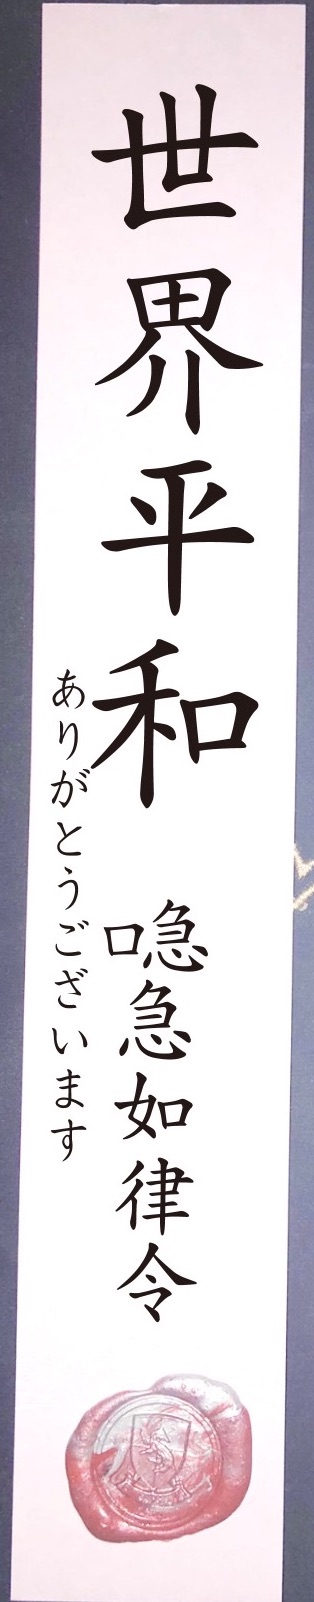 世界平和
喼急如律令
ありがとうございます